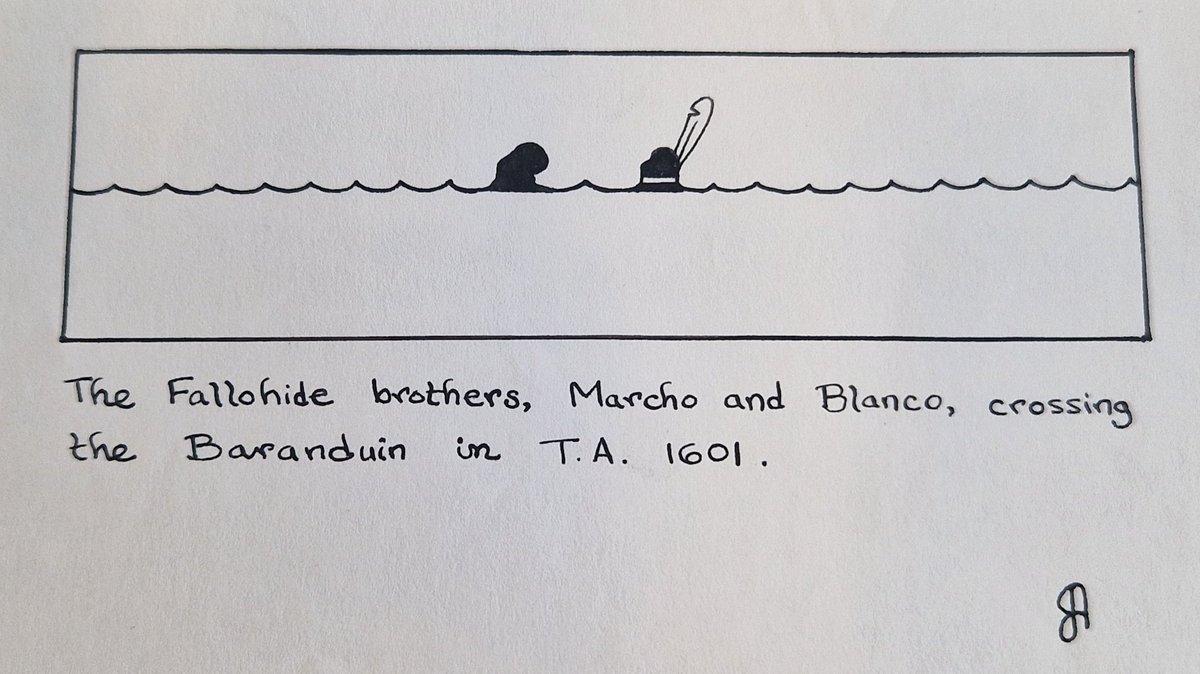 The Fallohide brothers, Marcho and Blanco, crossing
the Baranduin in T.A. 1601.